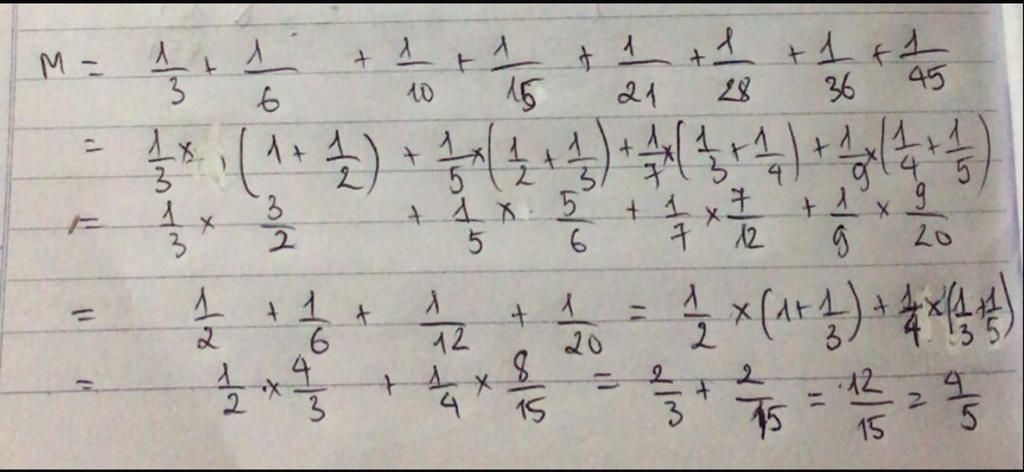 M = 1/3 + 1/6 + 1/10 + 1/15 + 1/21 + 1/28 + 1/36 + 1/45
= 1/3 × (1 + 1/2) + 1/5 × (1/2 + 1/3) + 1/7 × (1/3 + 1/4) + 1/9 × (1/4 + 1/5)
= 1/3 × 3/2 + 1/5 × 5/6 + 1/7 × 7/12 + 1/9 × 9/20
= 1/2 + 1/6 + 1/12 + 1/20 = 1/2 × (1 + 1/3) + 1/4 × (1/3 + 1/5)
= 1/2 × 4/3 + 1/4 × 8/15 = 2/3 + 2/15 = 12/15 = 4/5